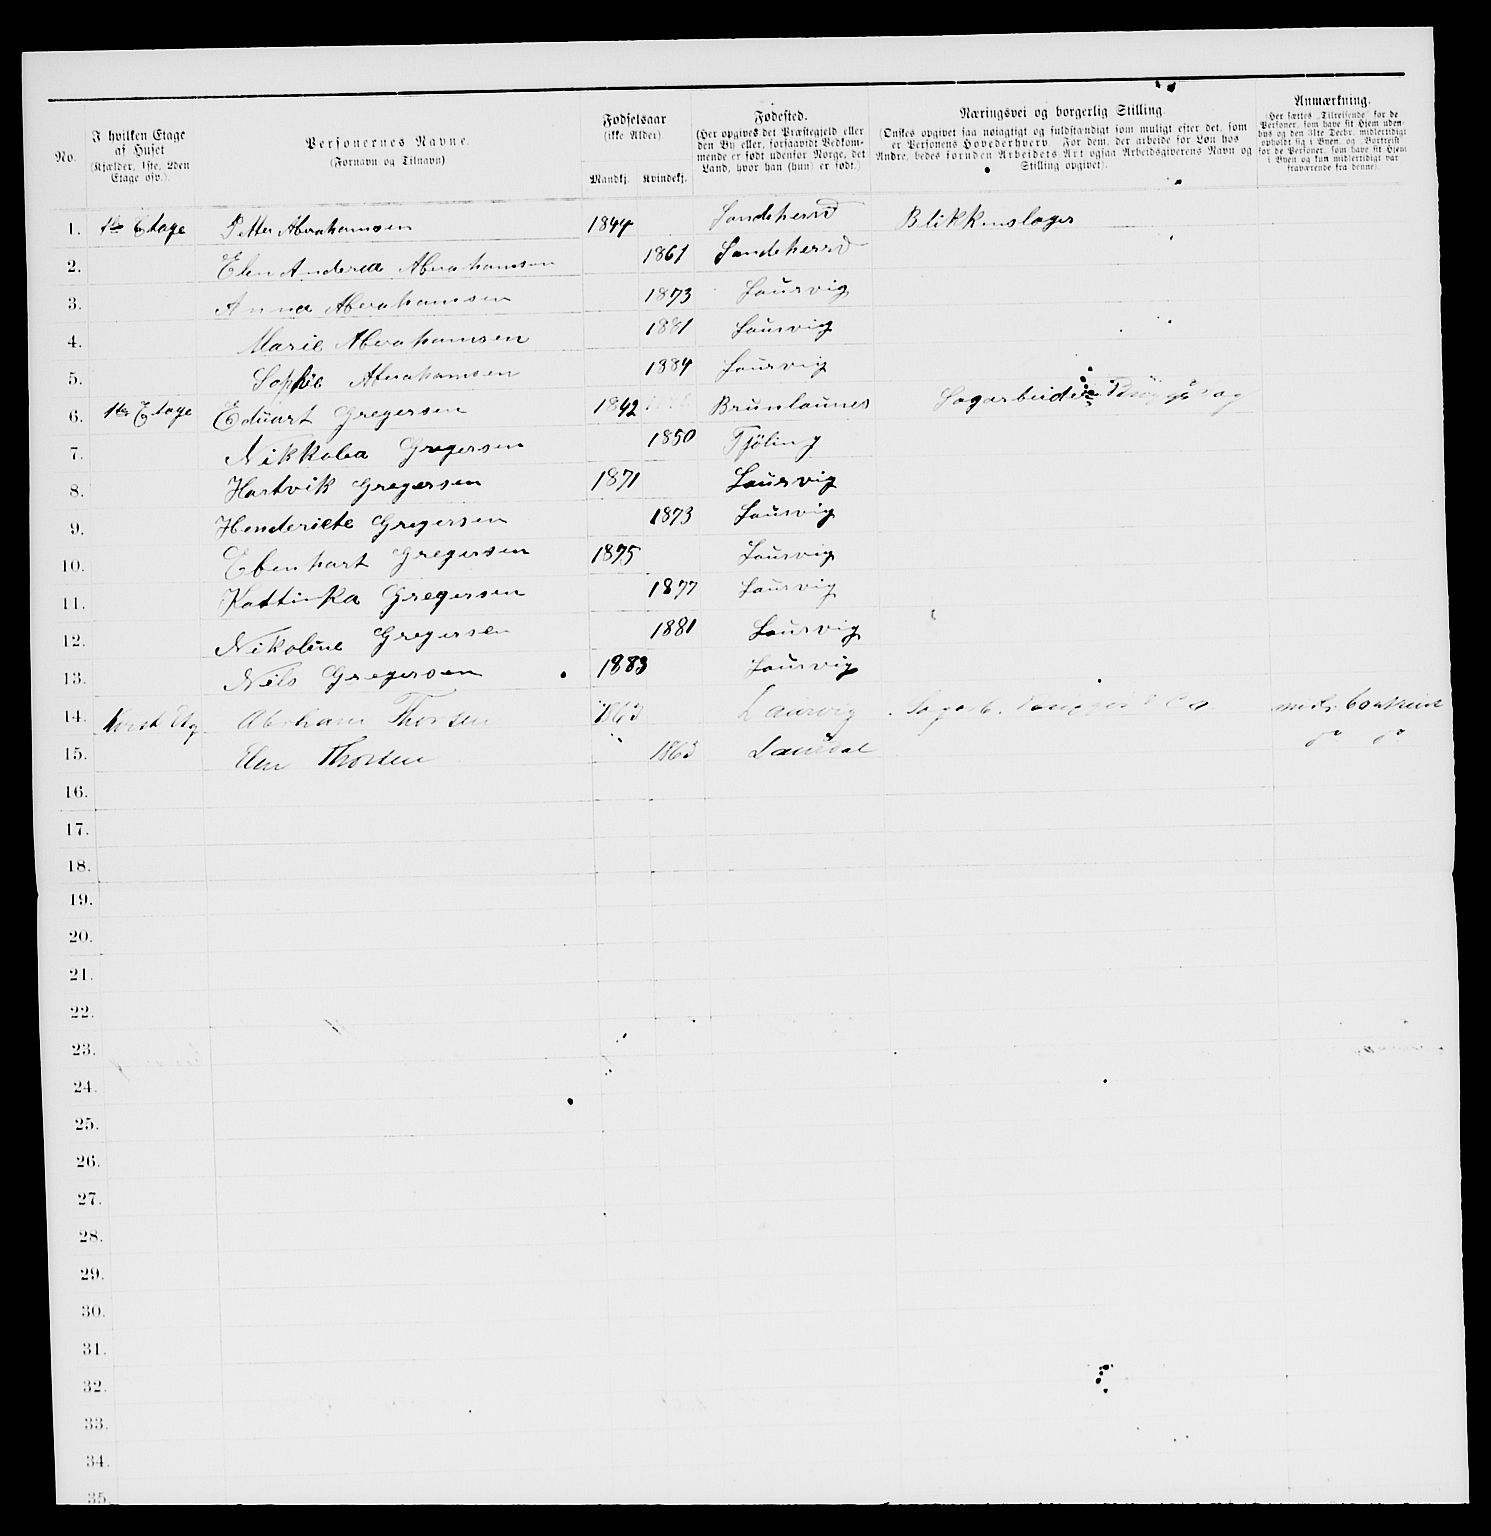 No.
I hvilken Etage af Huset (Kjælder, 1ste, 2den Etage osv.).
Personernes Navne. (Fornavn og Tilnavn)
Fødselsaar (ikke Alder). Mandkj. Kvindekj.
Fødested. (Her opgives det Præstegjeld eller den By eller, forsaavidt Vedkommende er født udenfor Norge, det Land, hvor han (hun) er født.)
Næringsvei og borgerlig Stilling. (Ønskes opgivet saa nøiagtigt og fuldstændigt som muligt efter det, som er Personens Hovederhverv. For dem, der arbeide for Løn hos Andre, bedes foruden Arbeidets Art ogsaa Arbeidsgiverens Navn og Stilling opgivet).
Anmærkning. (Her sættes „Tilreisende" for de Personer, som have sit Hjem udenbys og den 31te Decbr. midlertidigt opholdt sig i Byen, og „Bortreist" for de Personer, som have sit Hjem i Byen og kun midlertidigt var fraværende fra denne).
1. 1ste Etage Petter Abrahamsen 1844 Sandeherrd Blikkenslager
2. Elen Anderea Abrahamsen 1861 Sandeherrd
3. Anna Abrahamsen 1873 Laurvig
4. Marie Abrahamsen 1881 Laurvig
5. Sophie Abrahamsen 1884 Laurvig
6. 1ste Etage Eduart Gregersen 1842 Brunlaunes Sagarbeider
7. Nikkolea Gregersen 1850 Tjöling
8. Hartvik Gregersen 1871 Laurvig
9. Henderiete Gregersen 1873 Laurvig
10. Ebenhart Gregersen 1875 Laurvig
11. Kattinka Gregersen 1877 Laurvig
12. Nikoline Gregersen 1881 Laurvig
13. Nils Gregersen 1883 Laurvig
14. Abraham Thorsen 1863 Laurvig
15. Elen Thorsen 1863 Laurdal
16.
17.
18.
19.
20.
21.
22.
23.
24.
25.
26.
27.
28.
29.
30.
31.
32.
33.
34.
35.